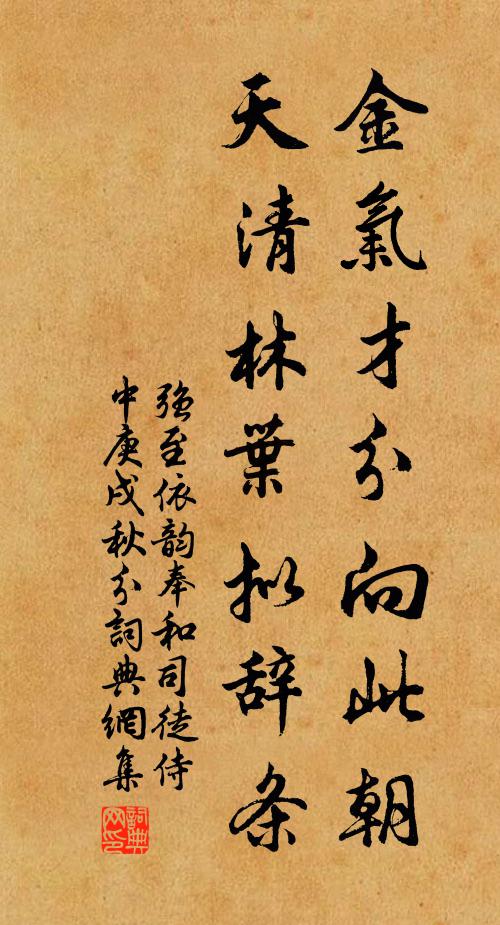 金氣才分向此朝
天清林葉拟辞条
强至依韵奉和司徒侍
中庚戌秋分詞典網集
詞典网印